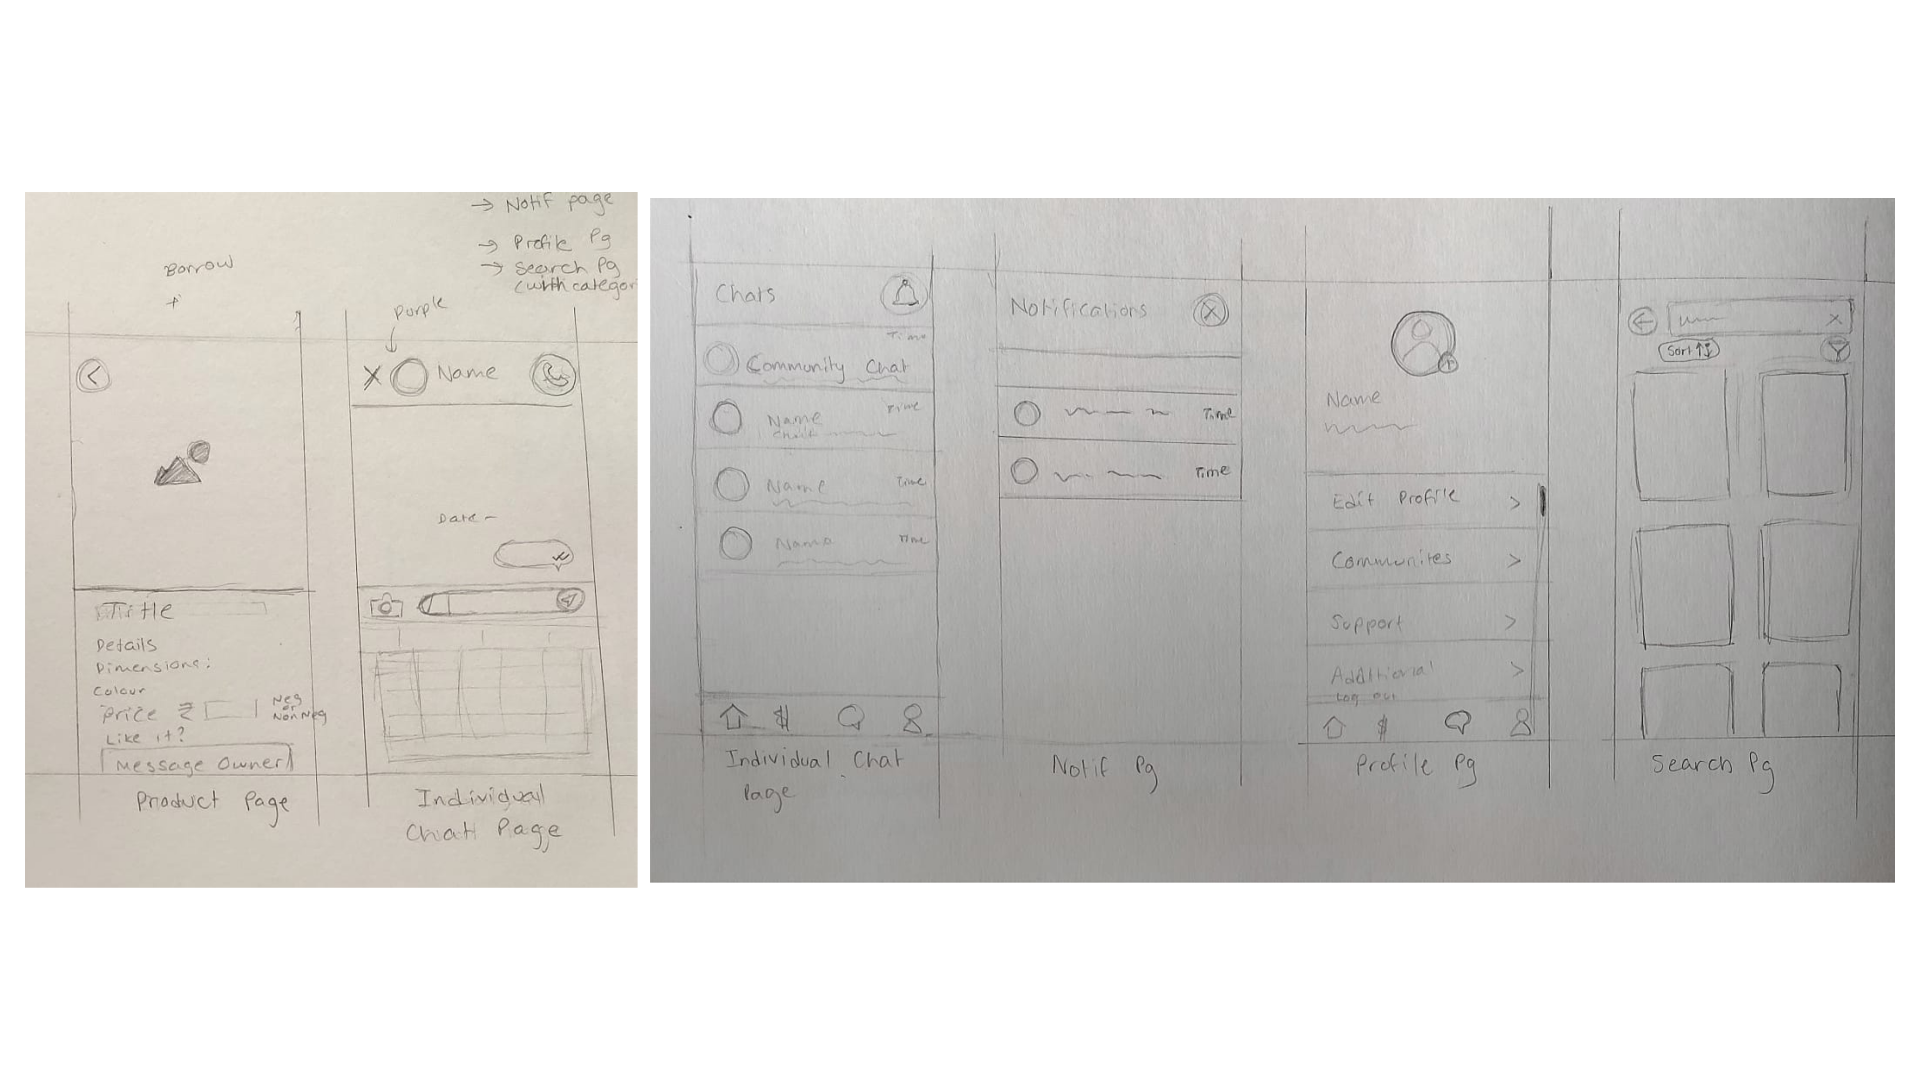 → Notif page
→ Profile Pg
→ Search Pg
(with categor
Borrow
+
Purple
Name
Date -
Title
Details
Dimensions:
Colour
Price ₹
Neg
or
Non Neg
Like it?
Message Owner
Product Page
Individual
Chat Page
Chats
Time
Community Chat
Name
Time
Chat
Name
Time
Name
Time
Individual Chat
Page
Notifications
Time
Time
Notif Pg
Name
Edit Profile >
Communites >
Support >
Additional >
Log out
Profile Pg
Sort ↑↓
Search Pg